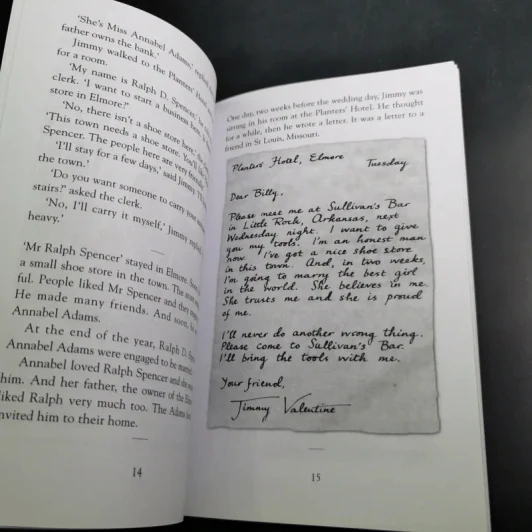 'She's Miss Annabel Adams,'
father owns the bank.'
Jimmy walked to the Planters'
for a room.
'My name is Ralph D. Spencer,'
clerk. 'I want to start a business
store in Elmore?'
'No, there isn't a shoe store here,'
'This town needs a shoe store. You'll
Spencer. The people here are very friendly
'I'll stay for a few days,' said Jimmy.
the town.'
'Do you want someone to carry your
stairs?' asked the clerk.
'No, I'll carry it myself,' Jimmy
heavy.'
'Mr Ralph Spencer' stayed in Elmore.
a small shoe store in the town. The
ful. People liked Mr Spencer and they
He made many friends. And soon, he
Annabel Adams.
At the end of the year, Ralph D.
Annabel Adams were engaged to be married
Annabel loved Ralph Spencer and she was
him. And her father, the owner of the
liked Ralph very much too. The Adams
invited him to their home.
14
One day, two weeks before the wedding day, Jimmy was
sitting in his room at the Planters' Hotel. He thought
for a while, then he wrote a letter. It was a letter to a
friend in St Louis, Missouri.
Planters' Hotel, Elmore Tuesday
Dear Billy,
Please meet me at Sullivan's Bar
in Little Rock, Arkansas, next
Wednesday night. I want to give
you my tools. I'm an honest man
now. I've got a nice shoe store
in this town. And, in two weeks,
I'm going to marry the best girl
in the world. She believes in me.
She trusts me and she is proud
of me.
I'll never do another wrong thing.
Please come to Sullivan's Bar.
I'll bring the tools with me.
Your friend,
Jimmy Valentine
15